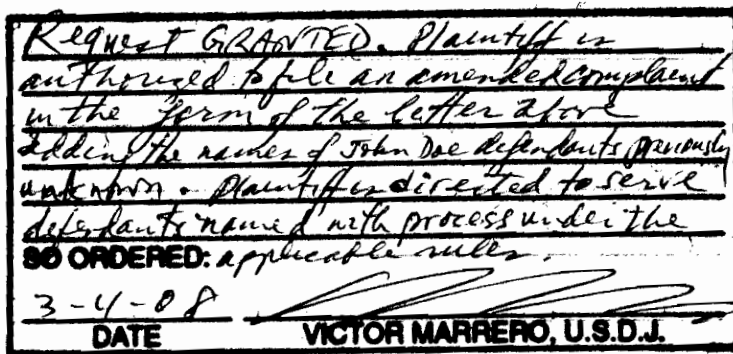 Request GRANTED. Plaintiff is
authorized to file an amended complaint
in the form of the letter above
adding the names of John Doe defendants previously
unknown. Plaintiff is directed to serve
defendants named with process under the
SO ORDERED: applicable rules.
3-4-08
DATE VICTOR MARRERO, U.S.D.J.